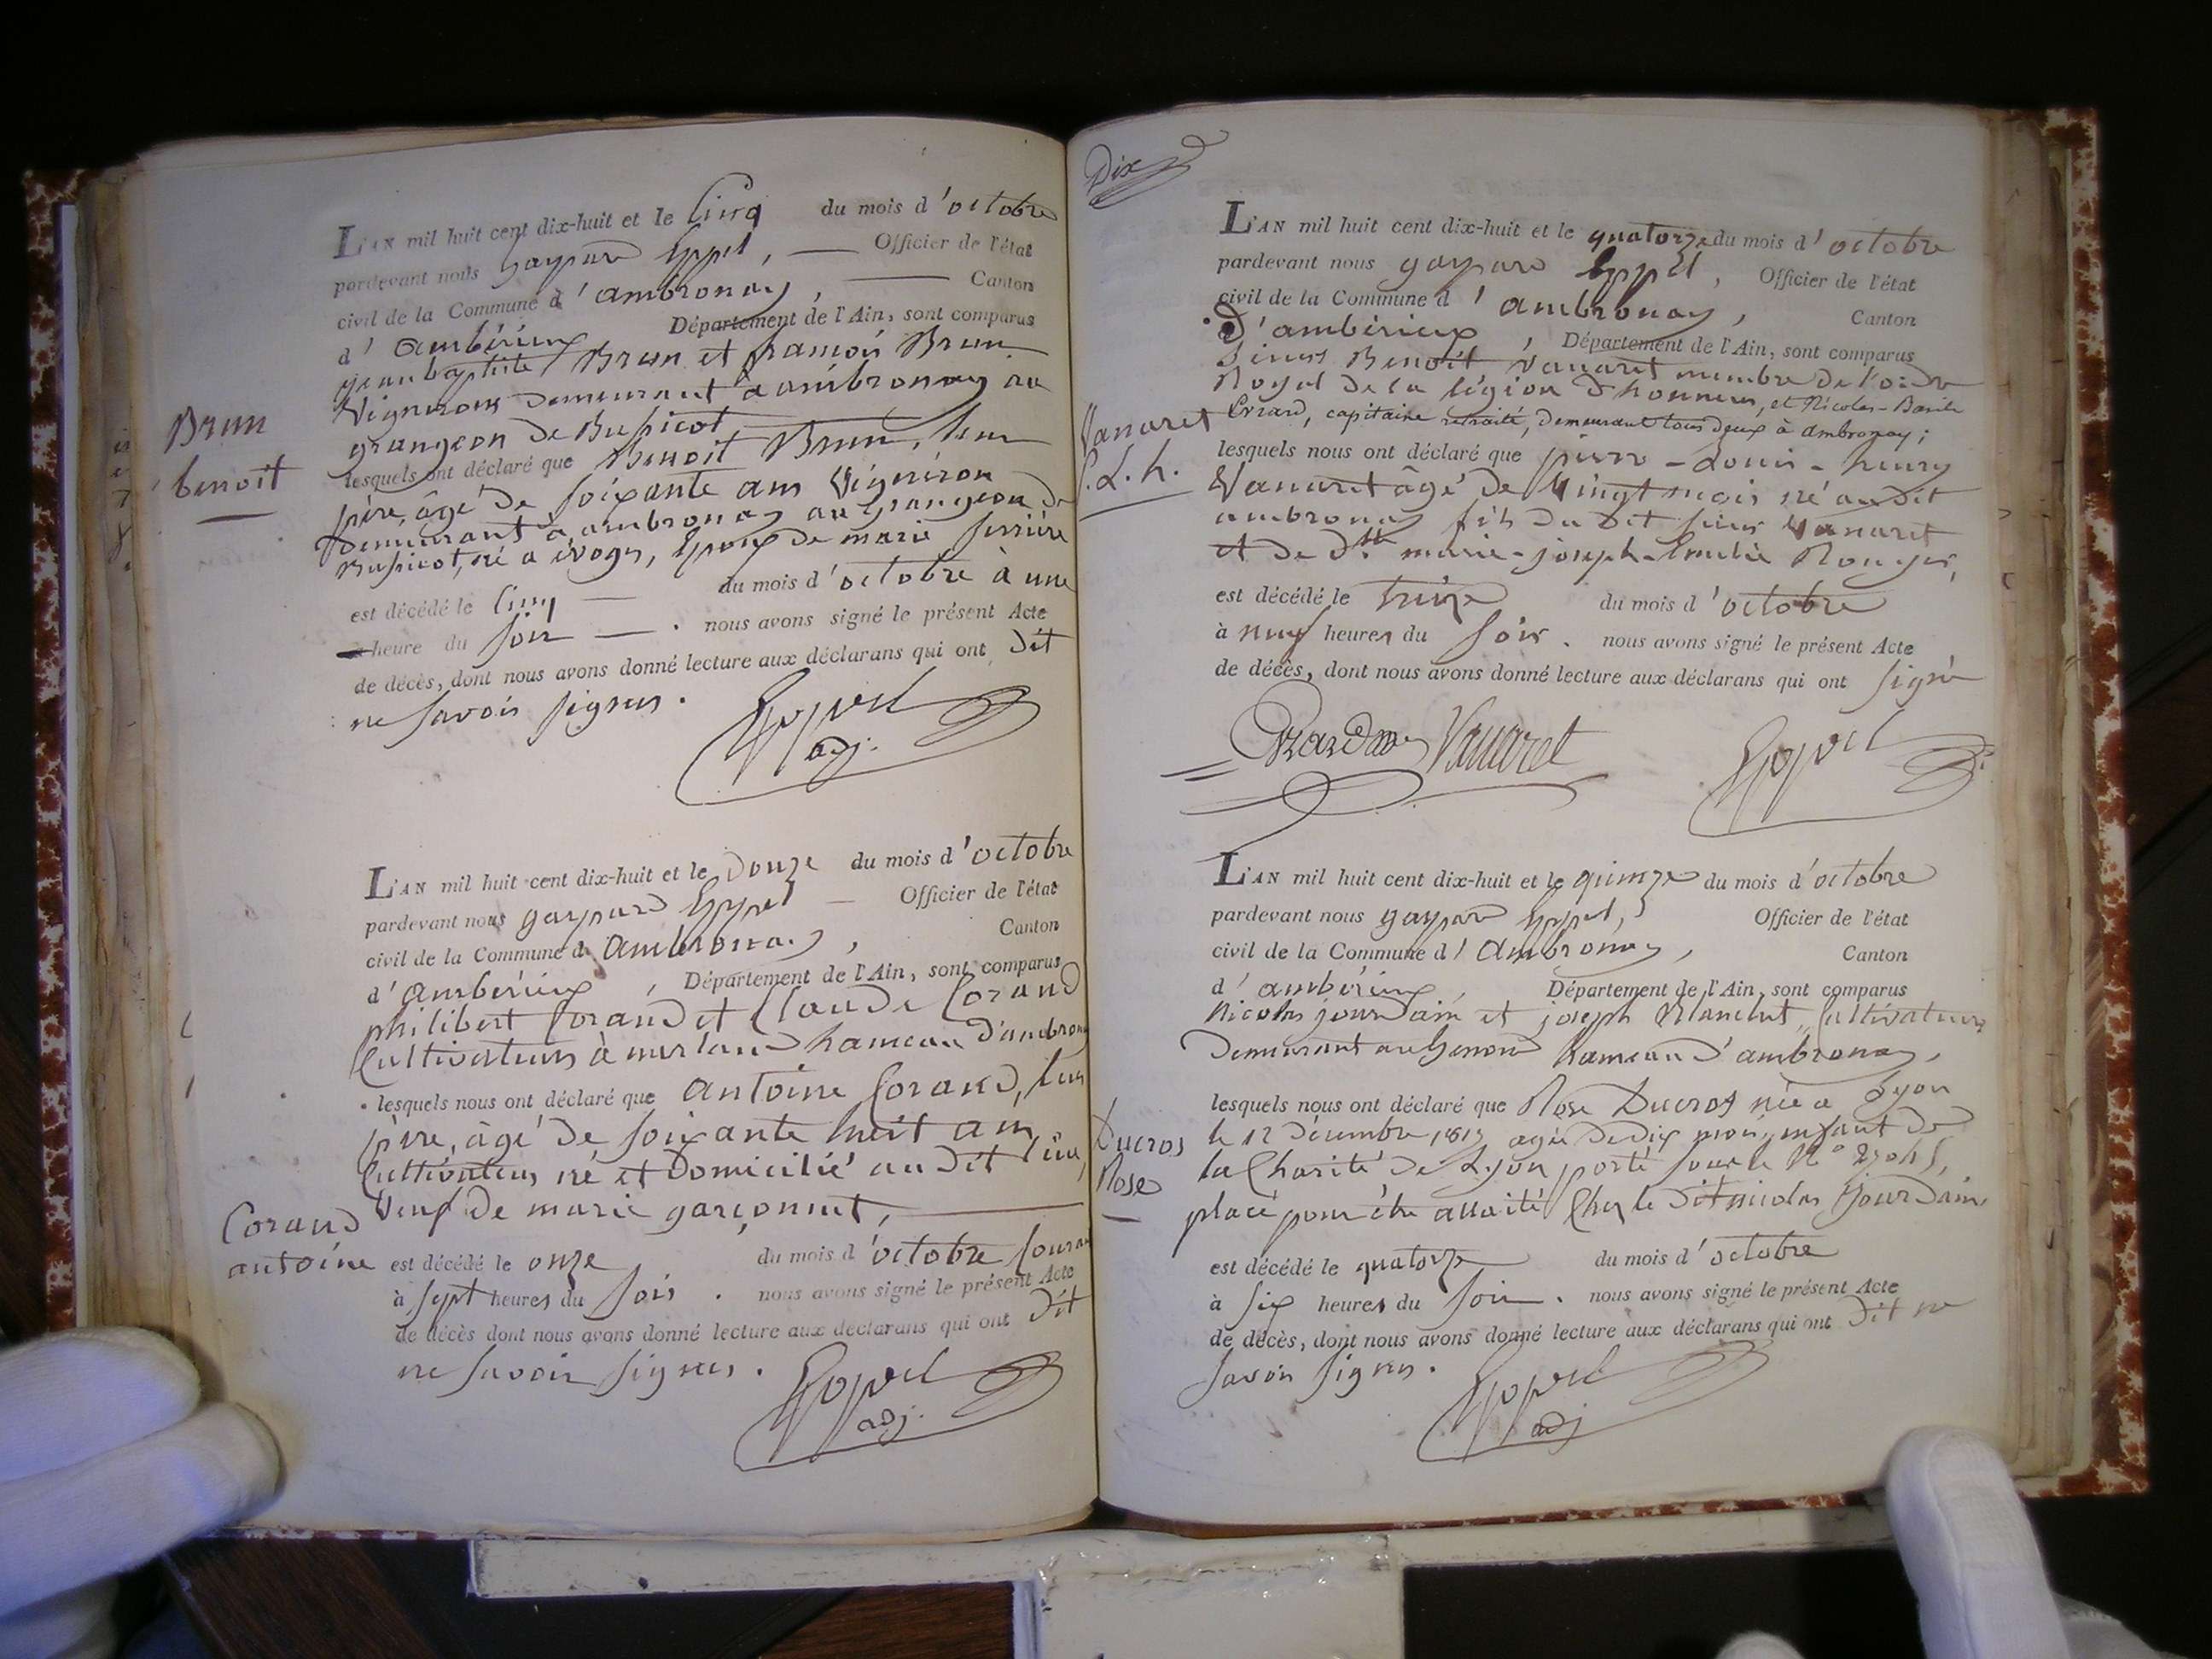 L'AN mil huit cent dix-huit et le Cinq du mois d'octobre
pardevant nous gaspard Eppel, Officier de l'état
civil de la Commune d'ambronay, Canton
d'ambérieux Département de l'Ain, sont comparus
jean baptiste Brun et françois Brun
Vignerons demeurant à ambronay au
grangeon de
Brun
benoit
lesquels ont déclaré que Benoit Brun, leur
père, âgé de soixante ans Vigneron
demeurant à ambronay au Grangeon de
né a évoges, Epoux de marie ferrière
est décédé le Cinq du mois d'octobre à une
heure du soir . nous avons signé le présent Acte
de décès, dont nous avons donné lecture aux déclarans qui ont dit
ne savoir signer.
Eppel
adj.
L'AN mil huit cent dix-huit et le Douze du mois d'octobre
pardevant nous gaspard Eppel Officier de l'état
civil de la Commune d'ambronay, Canton
d'ambérieux, Département de l'Ain, sont comparus
philibert Corand et Claude Corand
Cultivateurs à merland hameau d'ambronay
lesquels nous ont déclaré que antoine Corand, leur
père, âgé de soixante huit ans
Cultivateur né et Domicilié au dit lieu,
Veuf de marie garçonnet,
Corand
antoine
est décédé le onze du mois d'octobre courant
à sept heures du soir . nous avons signé le présent Acte
de décès dont nous avons donné lecture aux déclarans qui ont dit
ne savoir signer.
Eppel
adj.
Dix
L'AN mil huit cent dix-huit et le quatorze du mois d'octobre
pardevant nous gaspard Eppel, Officier de l'état
civil de la Commune d'ambronay, Canton
D'ambérieux, Département de l'Ain, sont comparus
Sieurs Benoît Vanaret membre de l'ordre
Royal de la légion d'honneur, et Nicolas-Basile
capitaine retraité, demeurant tous deux à ambronay;
Vanaret
P. L. h.
lesquels nous ont déclaré que pierre-Louis-henry
Vanaret âgé de Vingt mois né au dit
ambronay fils du dit sieur Vanaret
et de d.lle marie-joseph-Emelie Rouyer,
est décédé le treize du mois d'octobre
à neuf heures du soir. nous avons signé le présent Acte
de décès, dont nous avons donné lecture aux déclarans qui ont signé
Vanaret
Eppel
L'AN mil huit cent dix-huit et le quinze du mois d'octobre
pardevant nous gaspard Eppel, Officier de l'état
civil de la Commune d'Ambronay, Canton
d'ambérieux, Département de l'Ain, sont comparus
Nicolas jourdain et joseph Cultivateurs
demeurant au Genoud hameau d'ambronay,
Ducros
Rose
lesquels nous ont déclaré que Rose Ducros née a Lyon
le 12 décembre 1817 agée de dix mois, enfant de
la Charité de Lyon porté sous le N°
placé pour être allaité Chez le dit nicolas jourdain,
est décédé le quatorze du mois d'octobre
à six heures du soir. nous avons signé le présent Acte
de décès, dont nous avons donné lecture aux déclarans qui ont dit ne
savoir signer.
Eppel
adj